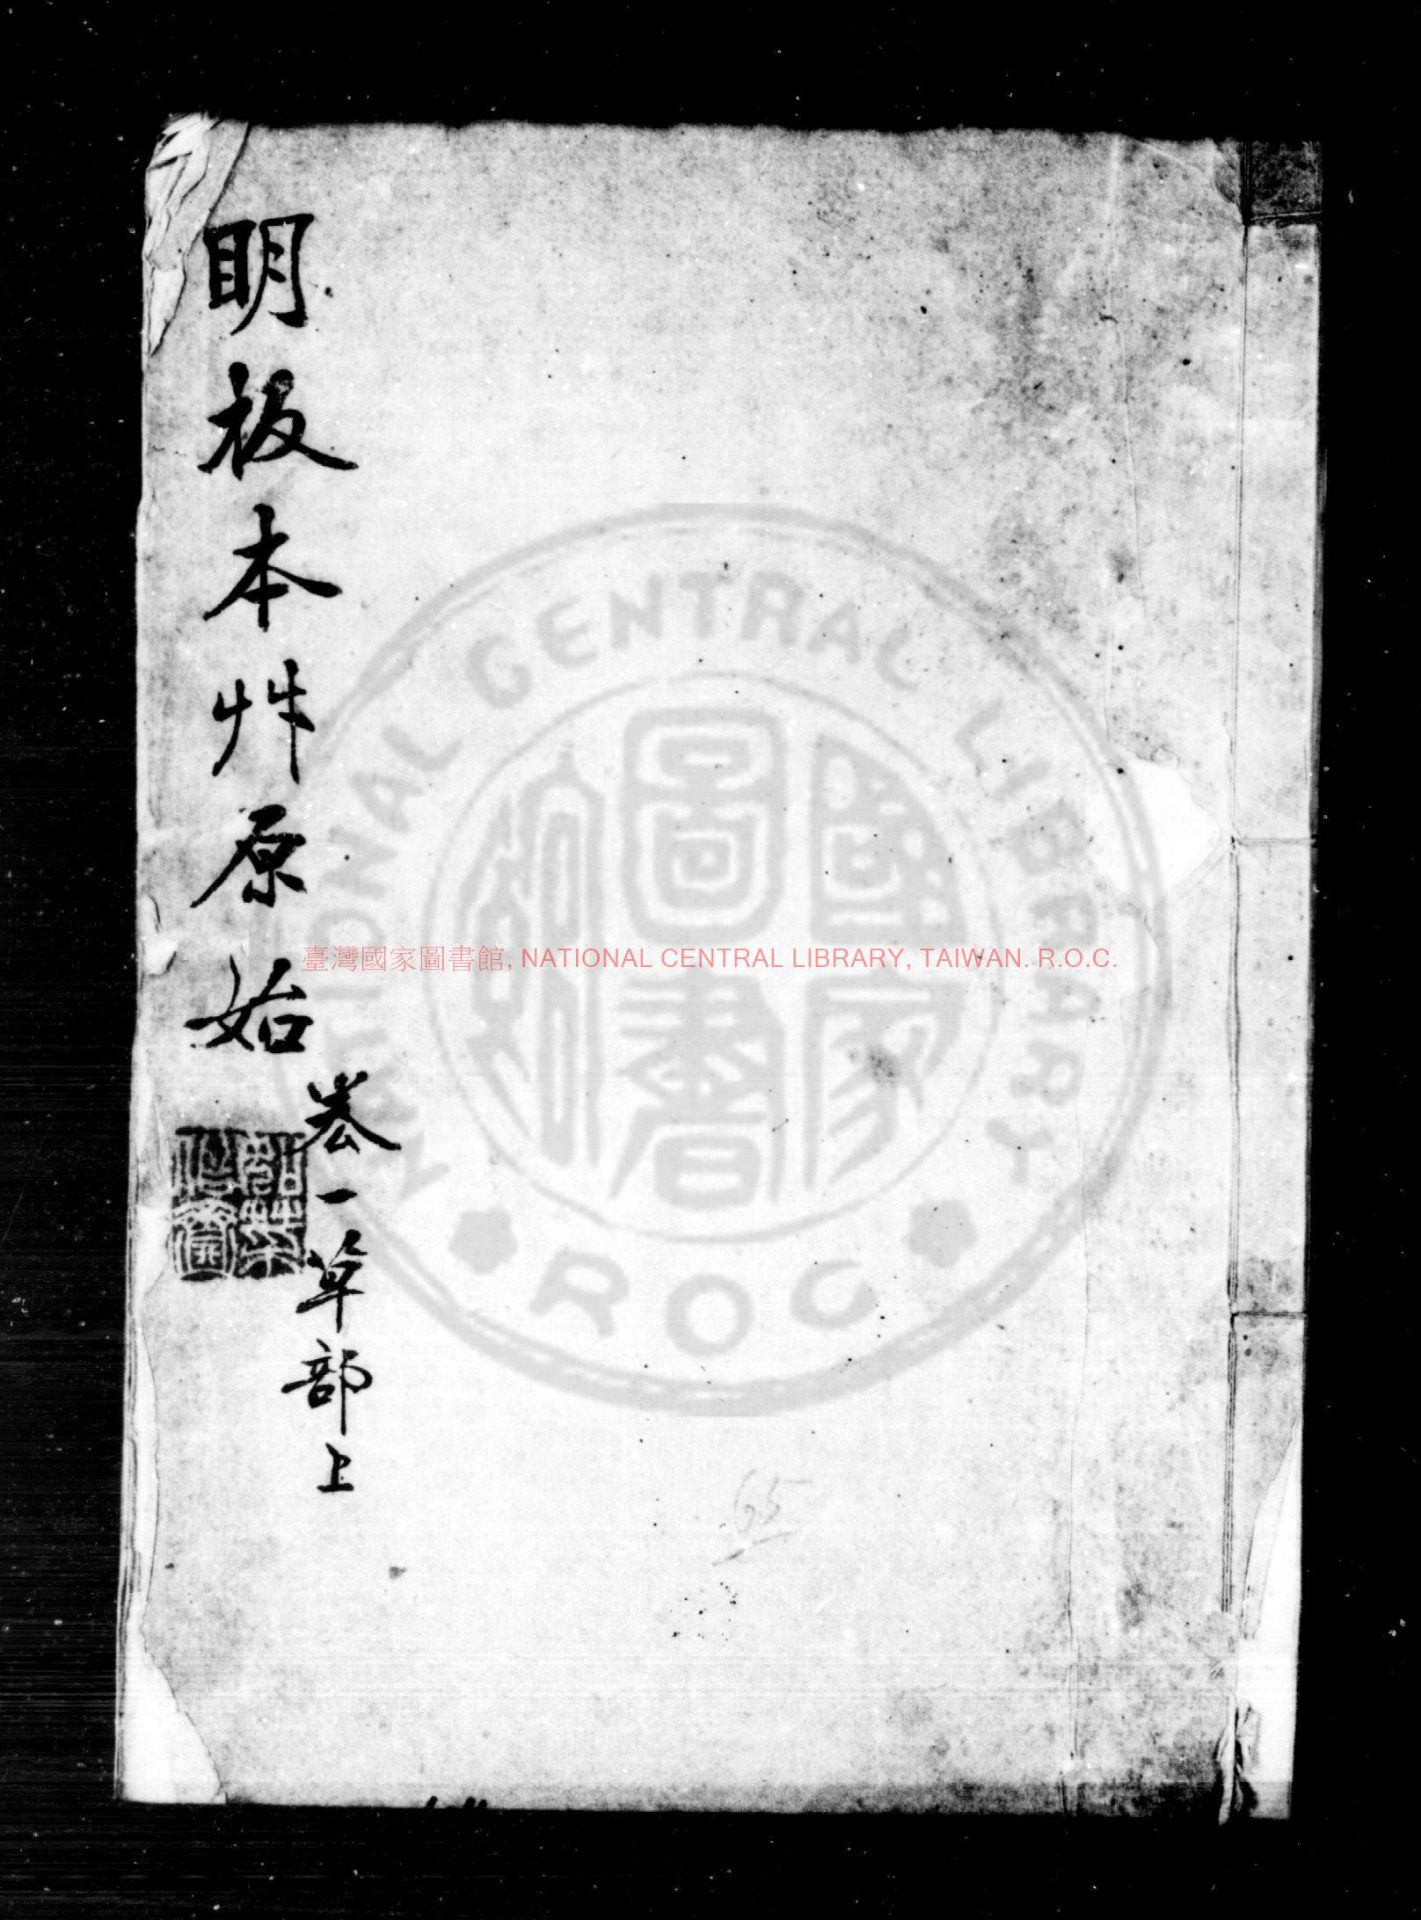 明板本艸原始
卷一草部上
臺灣國家圖書館, NATIONAL CENTRAL LIBRARY, TAIWAN. R.O.C.
NATIONAL CENTRAL LIBRARY
R O C
國家圖書館
65